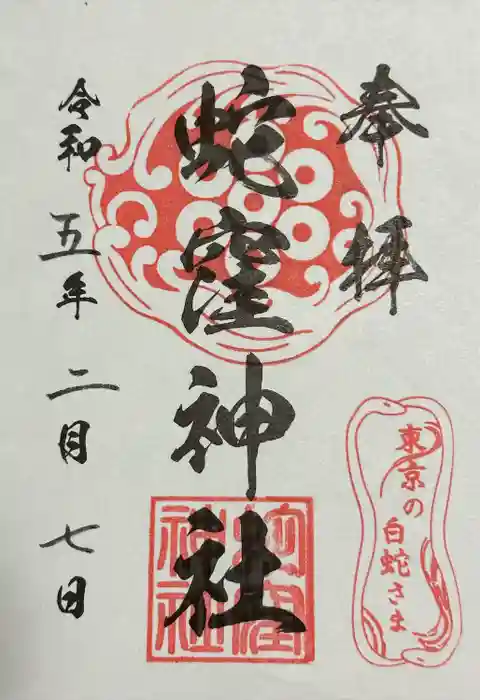 奉拝
蛇窪神社
蛇窪
神社
東京の
白蛇さま
令和五年二月七日